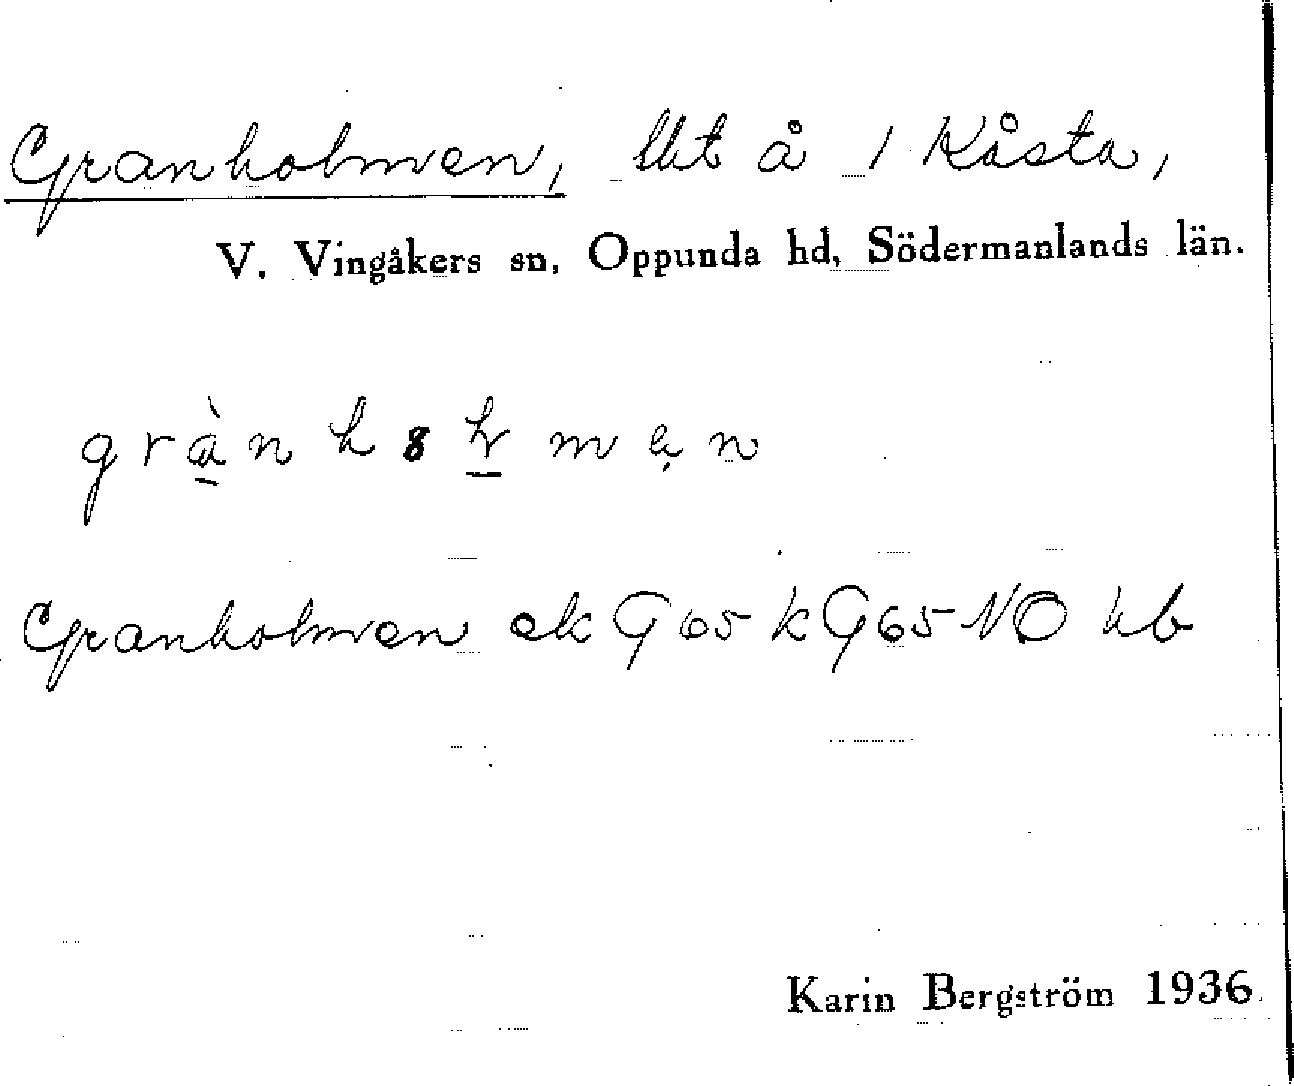 Granholmen, lht å 1 Kåsta,
V. Vingåkers sn, Oppunda hd, Södermanlands län.
Granholmen ek G 65 k G 65 NO hb
Karin Bergström 1936